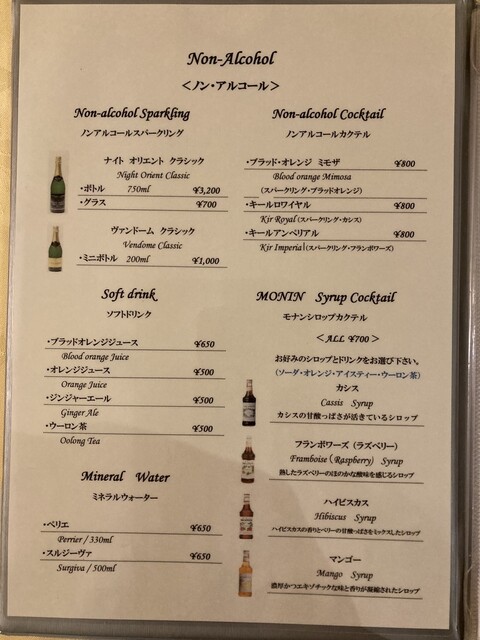 Non-Alcohol
＜ノン・アルコール＞
Non-alcohol Sparkling
ノンアルコールスパークリング
ナイト オリエント クラシック
Night Orient Classic
・ボトル 750ml ¥3,200
・グラス ¥700
ヴァンドーム クラシック
Vendome Classic
・ミニボトル 200ml ¥1,000
Non-alcohol Cocktail
ノンアルコールカクテル
・ブラッド・オレンジ ミモザ ¥800
Blood orange Mimosa
（スパークリング・ブラッドオレンジ）
・キールロワイヤル ¥800
Kir Royal（スパークリング・カシス）
・キールアンペリアル ¥800
Kir Imperial（スパークリング・フランボワーズ）
Soft drink
ソフトドリンク
・ブラッドオレンジジュース ¥650
Blood orange Juice
・オレンジジュース ¥500
Orange Juice
・ジンジャーエール ¥500
Ginger Ale
・ウーロン茶 ¥500
Oolong Tea
Mineral Water
ミネラルウォーター
・ペリエ ¥650
Perrier / 330ml
・スルジーヴァ ¥650
Surgiva / 500ml
MONIN Syrup Cocktail
モナンシロップカクテル
＜ALL ¥700＞
お好みのシロップとドリンクをお選び下さい。
（ソーダ・オレンジ・アイスティー・ウーロン茶）
カシス
Cassis Syrup
カシスの甘酸っぱさが活きているシロップ
フランボワーズ（ラズベリー）
Framboise（Raspberry） Syrup
熟したラズベリーのほのかな酸味を感じるシロップ
ハイビスカス
Hibiscus Syrup
ハイビスカスの香りとベリーの甘酸っぱさをミックスしたシロップ
マンゴー
Mango Syrup
濃厚かつエキゾチックな味と香りが凝縮されたシロップ